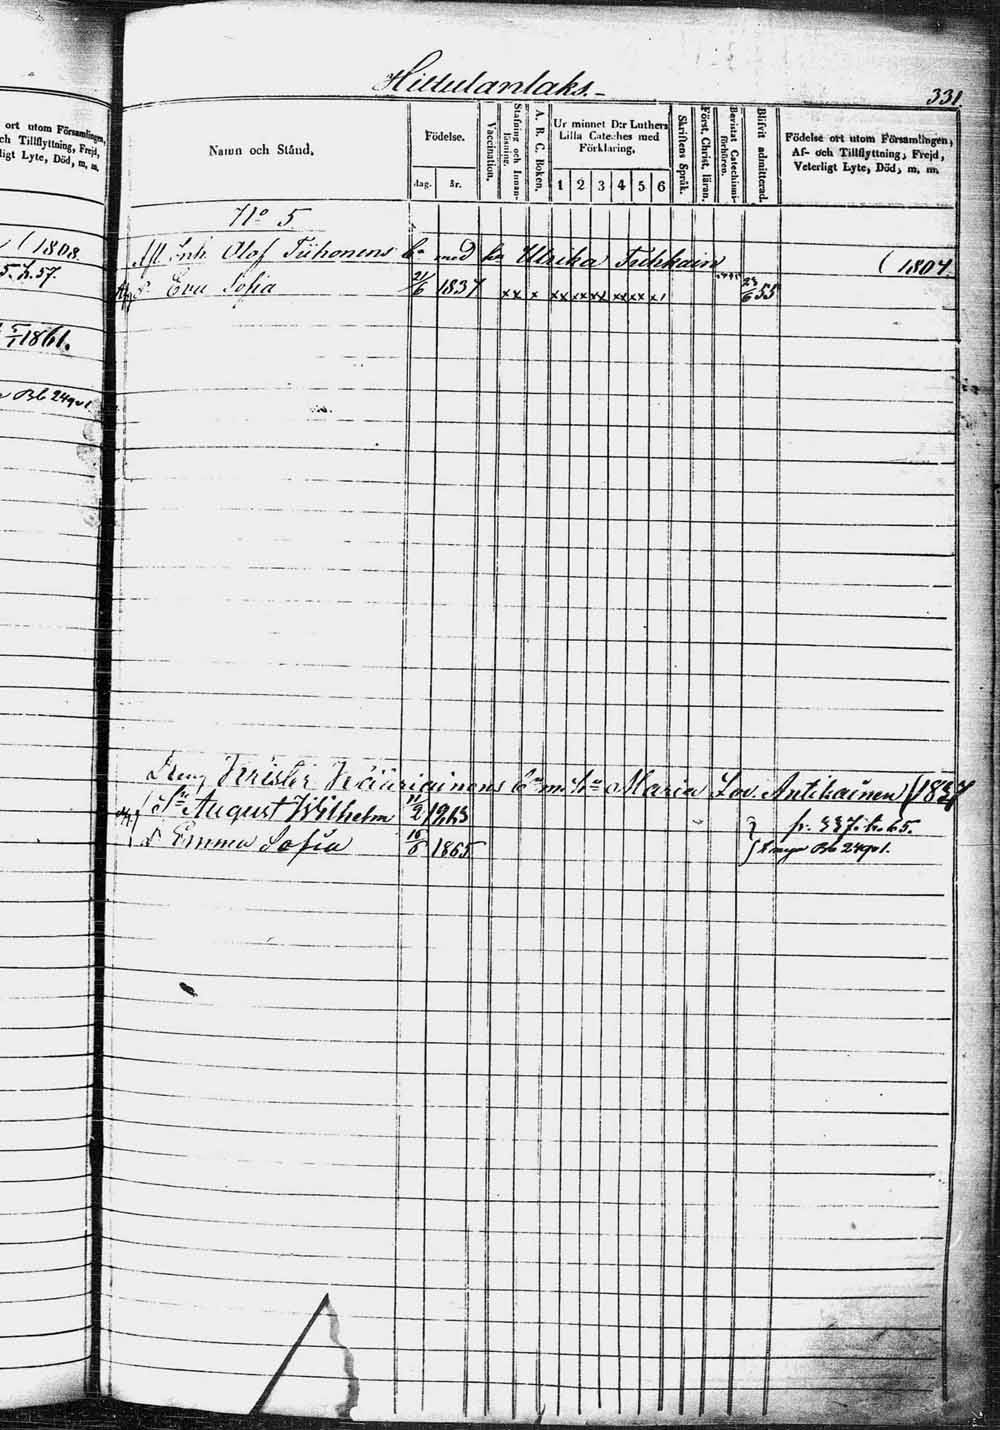 ort utom Församlingen,
och Tillflyttning, Frejd,
ligt Lyte, Död, m. m.
( 1808
5. h. 57.
5/1 1861.
Bb 2491
Hittulanlaks.
331
Namn och Stånd.
Födelse.
dag. år.
Vaccination.
Stafning och Innan-läsning.
A. B. C. Boken.
Ur minnet D:r Luthers
Lilla Cateches med
Förklaring,
1 2 3 4 5 6
Skriftens Språk.
Först. Christ. läran.
Bevistat Catechismi-förhören.
Blifvit admitterad.
Födelse ort utom Församlingen,
Af- och Tillflyttning, Frejd,
Veterligt Lyte, Död, m. m.
No 5
Afl. Inh. Olof Tiihonens med Ulrika ( 1807
Eva Sofia 21/6 1837 xx x xx xx xx xx xx x1 23/6 55
Dreng Krister m. Maria Lov. Antikainen ( 1837
August Wilhelm 11/2 1863 fr. 337. h. 65.
Emma Sofia 16/6 1865 Bb 2491.